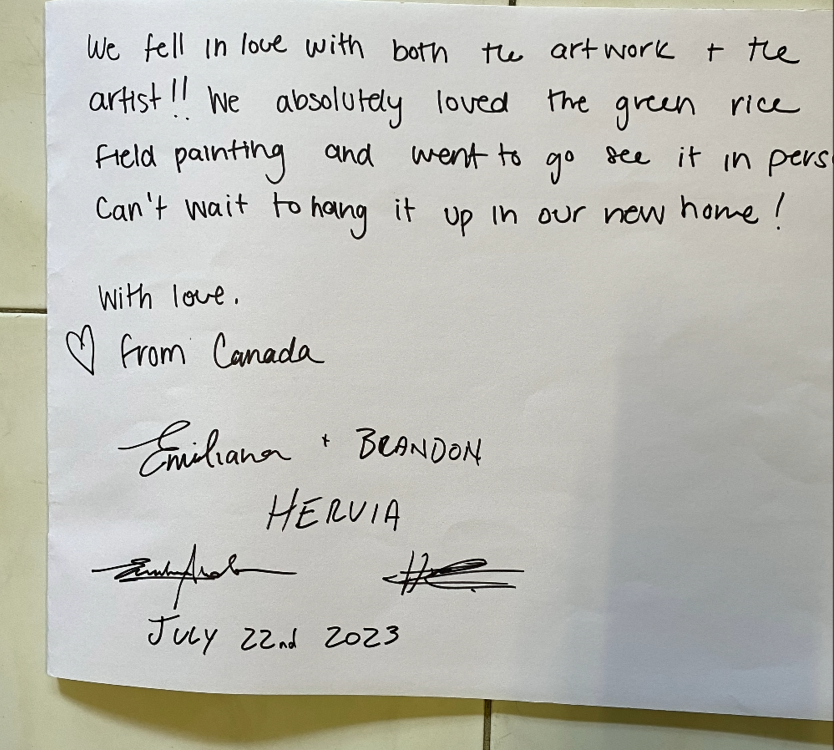 We fell in love with both the artwork + the
artist!! We absolutely loved the green rice
field painting and went to go see it in pers
Can't wait to hang it up in our new home!
With love.
♡ from Canada
Emiliana + BRANDON
HERVIA
JULY 22nd 2023